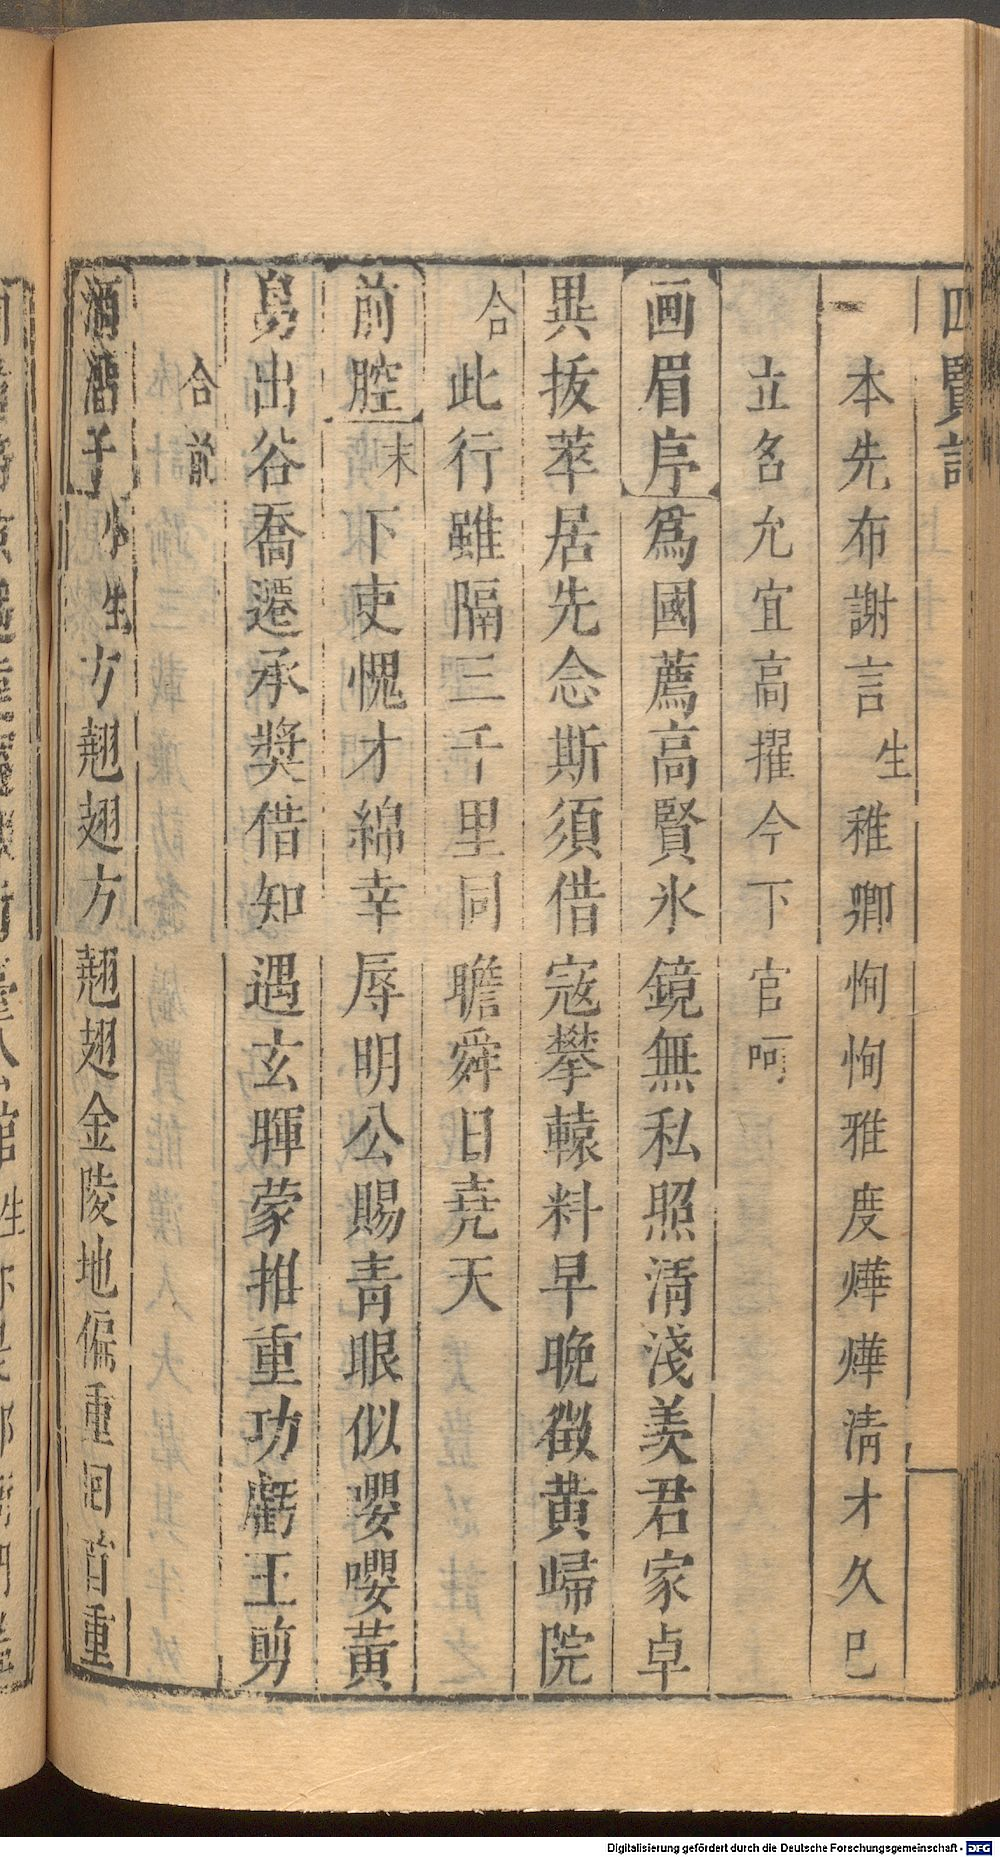 四賢記
本先布謝言生稚卿恂恂雅度燁燁清才久已
立名允宜高擢今下官呵
画眉序爲國薦高賢氷鏡無私照清淺羙君家卓
異拔萃居先念斯須借寇攀轅料早晚徴黄歸院
合此行雖隔三千里同瞻舜日堯天
前腔末下吏愧才綿幸辱明公賜青眼似嚶嚶黄
鳥出谷喬遷承奨借知遇玄暉蒙推重功虧王剪
合前
滴溜子小生方翹翹方翹翹金陵地偏重回首重
Digitalisierung gefördert durch die Deutsche Forschungsgemeinschaft - DFG